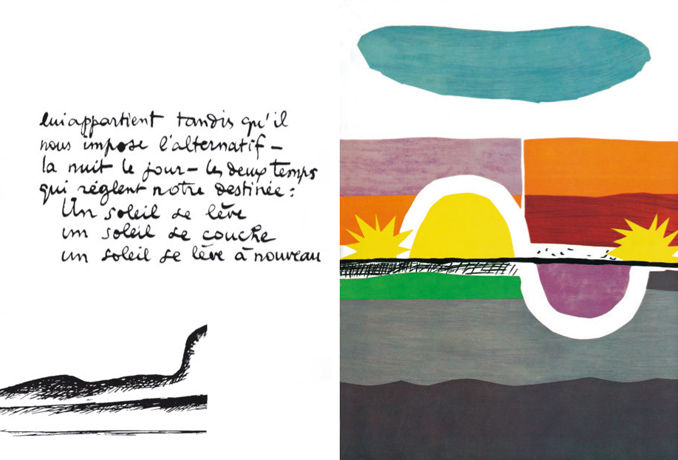 lui appartient tandis qu'il
nous impose l'alternatif –
la nuit le jour – les deux temps
qui règlent notre destinée :
Un soleil se lève
un soleil se couche
un soleil se lève à nouveau